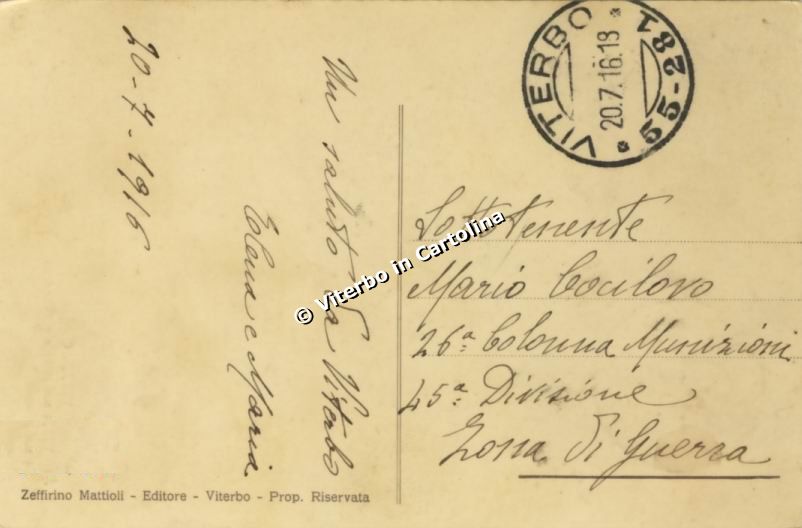 20-7-1916
Un saluto da Viterbo
Elena e Maria
VITERBO * 55-281 *
20.7.16.18
Sottotenente
Mario Cocilovo
26ª Colonna Munizioni
45ª Divisione
Zona di Guerra
© Viterbo in Cartolina
Zeffirino Mattioli - Editore - Viterbo - Prop. Riservata